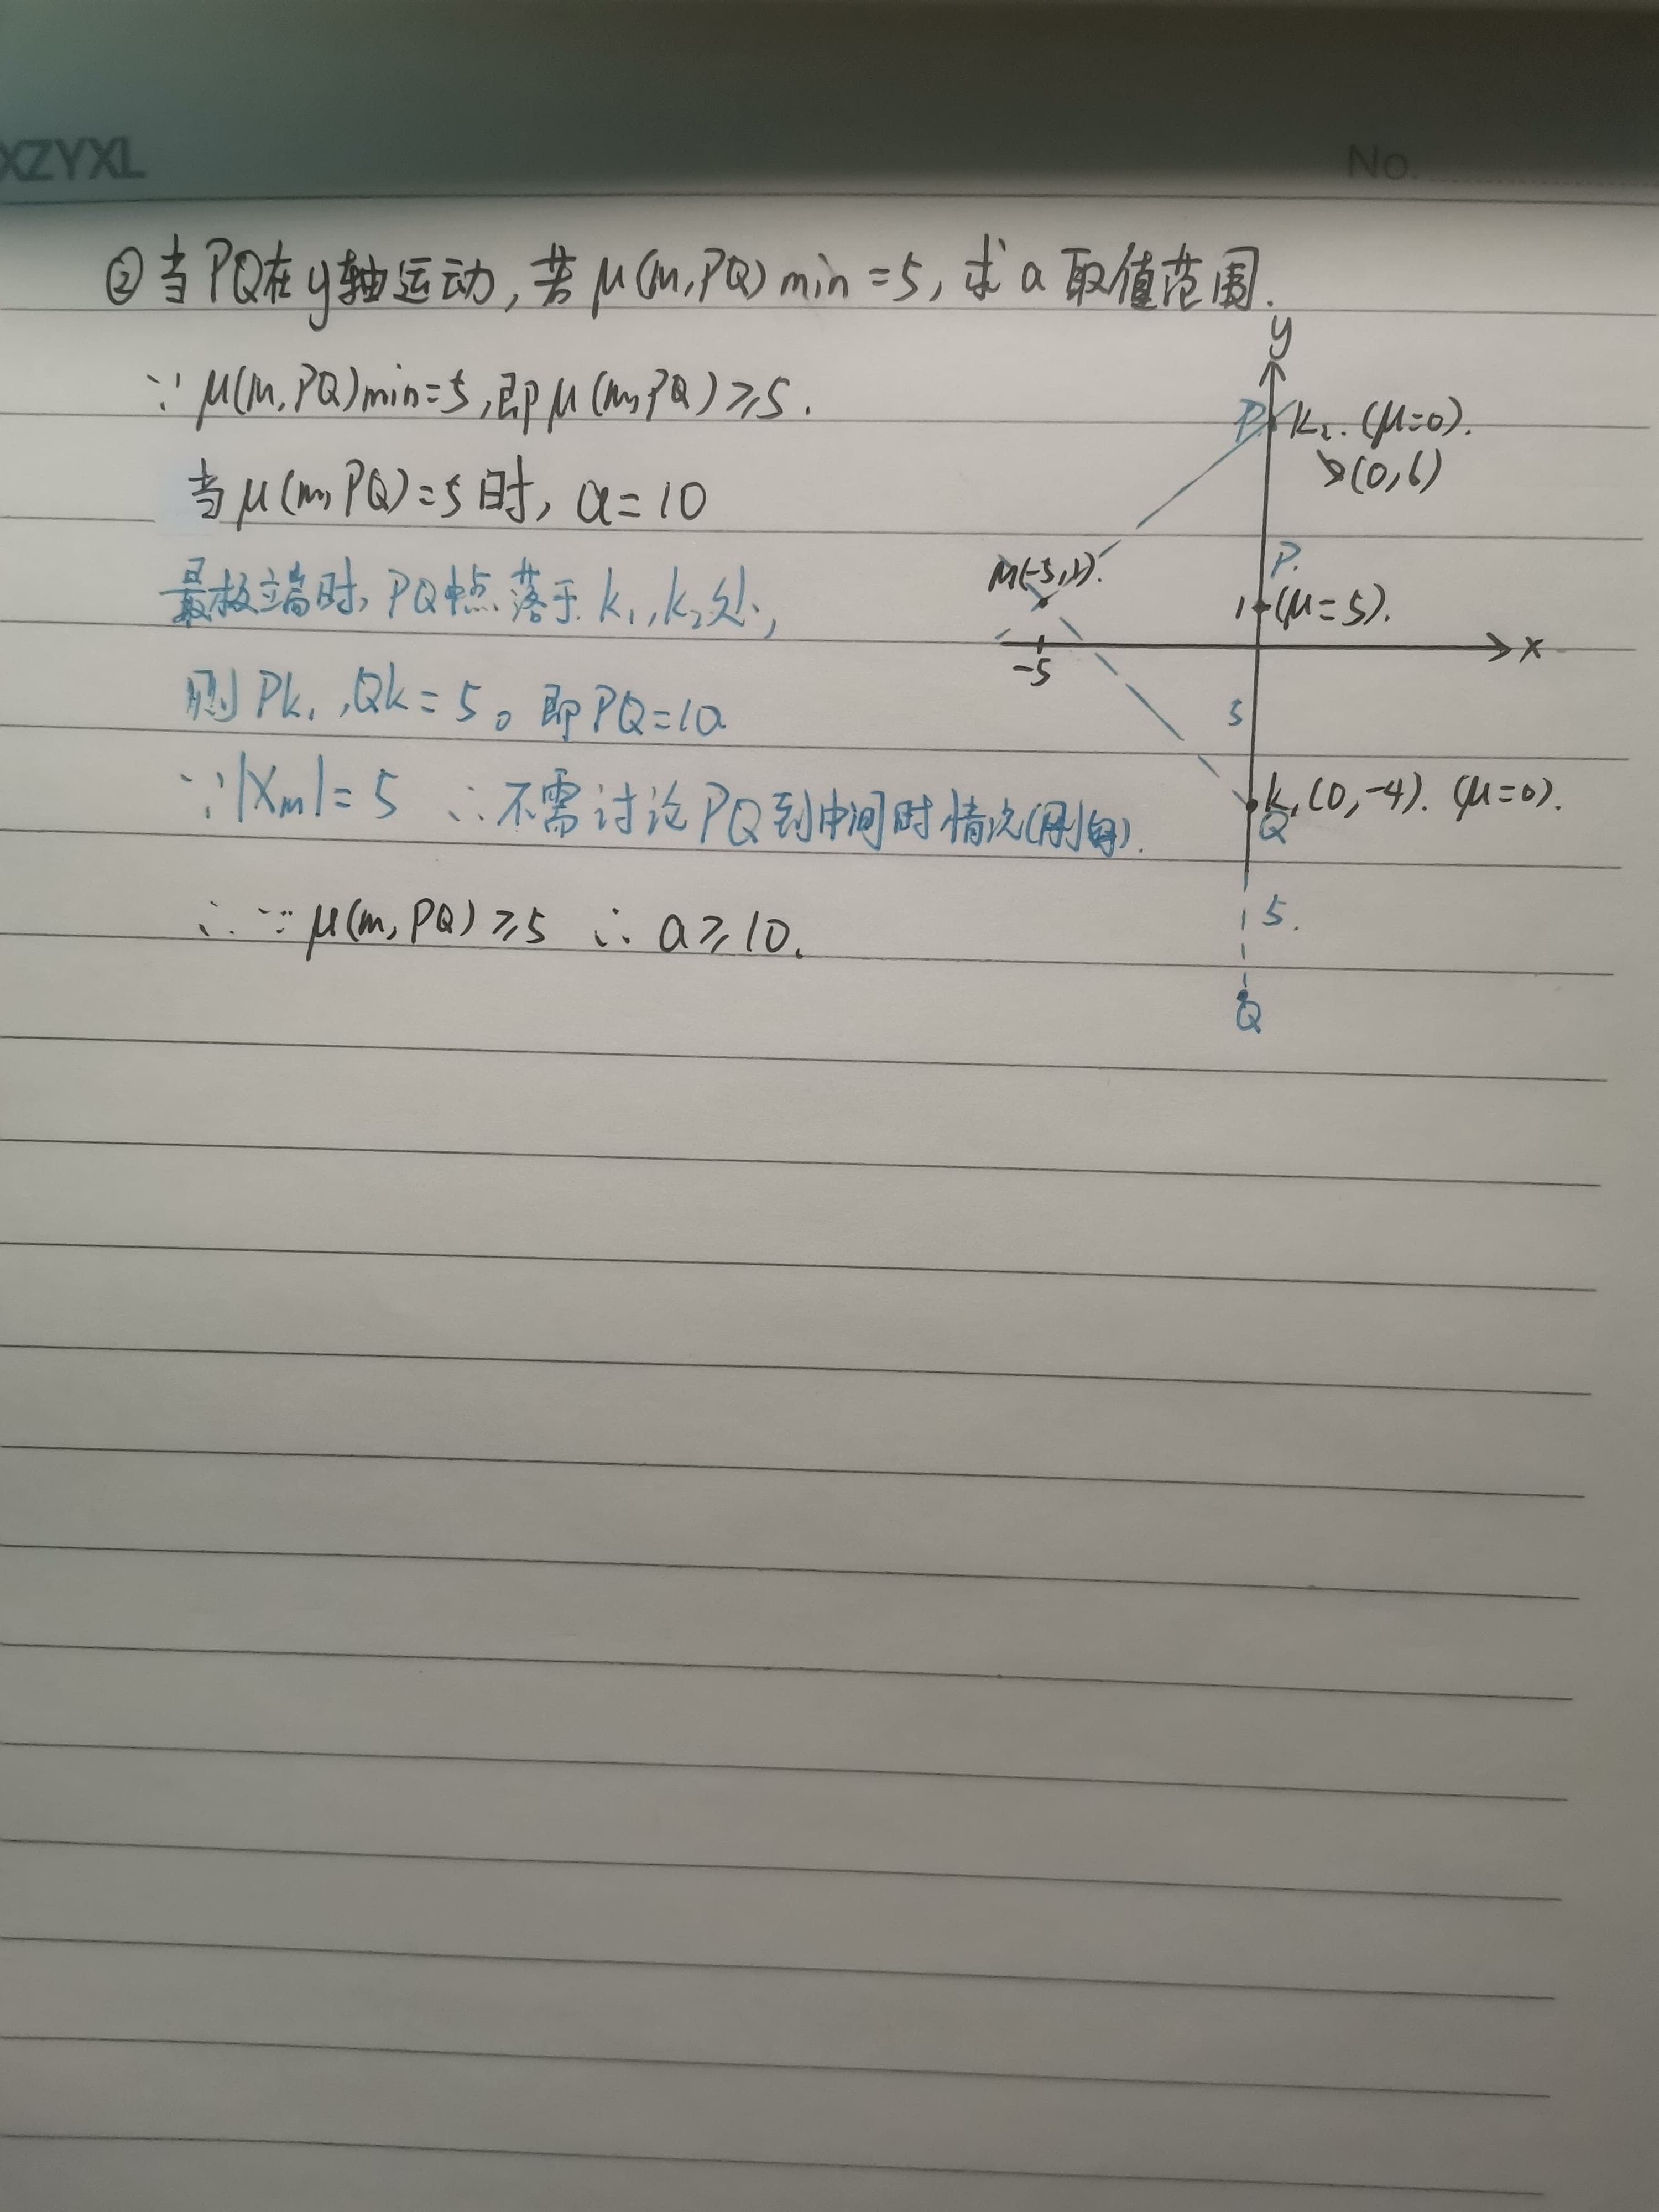 XZYXL
No.
②当PQ在y轴运动,若μ(m,PQ)min=5,求a取值范围.
∵μ(m,PQ)min=5,即μ(m,PQ)≥5.
当μ(m,PQ)=5时, a=10
最极端时,PQ中点落于k₁,k₂处,
则Pk₁,Qk=5。即PQ=10
∵|Xm|=5 ∴不需讨论PQ到中间时情况(刚好).
∴∵μ(m,PQ)≥5 ∴a≥10.
y
P
k₂.(μ=0).
(0,6)
P.
M(-5,1).
1
(μ=5).
-5
x
5
k₁(0,-4). (μ=0).
Q
5.
Q